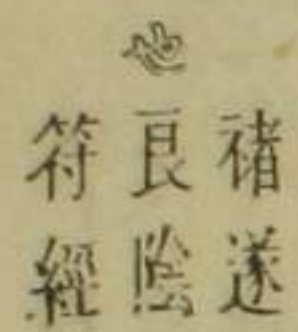 也
褚遂
良陰
符經